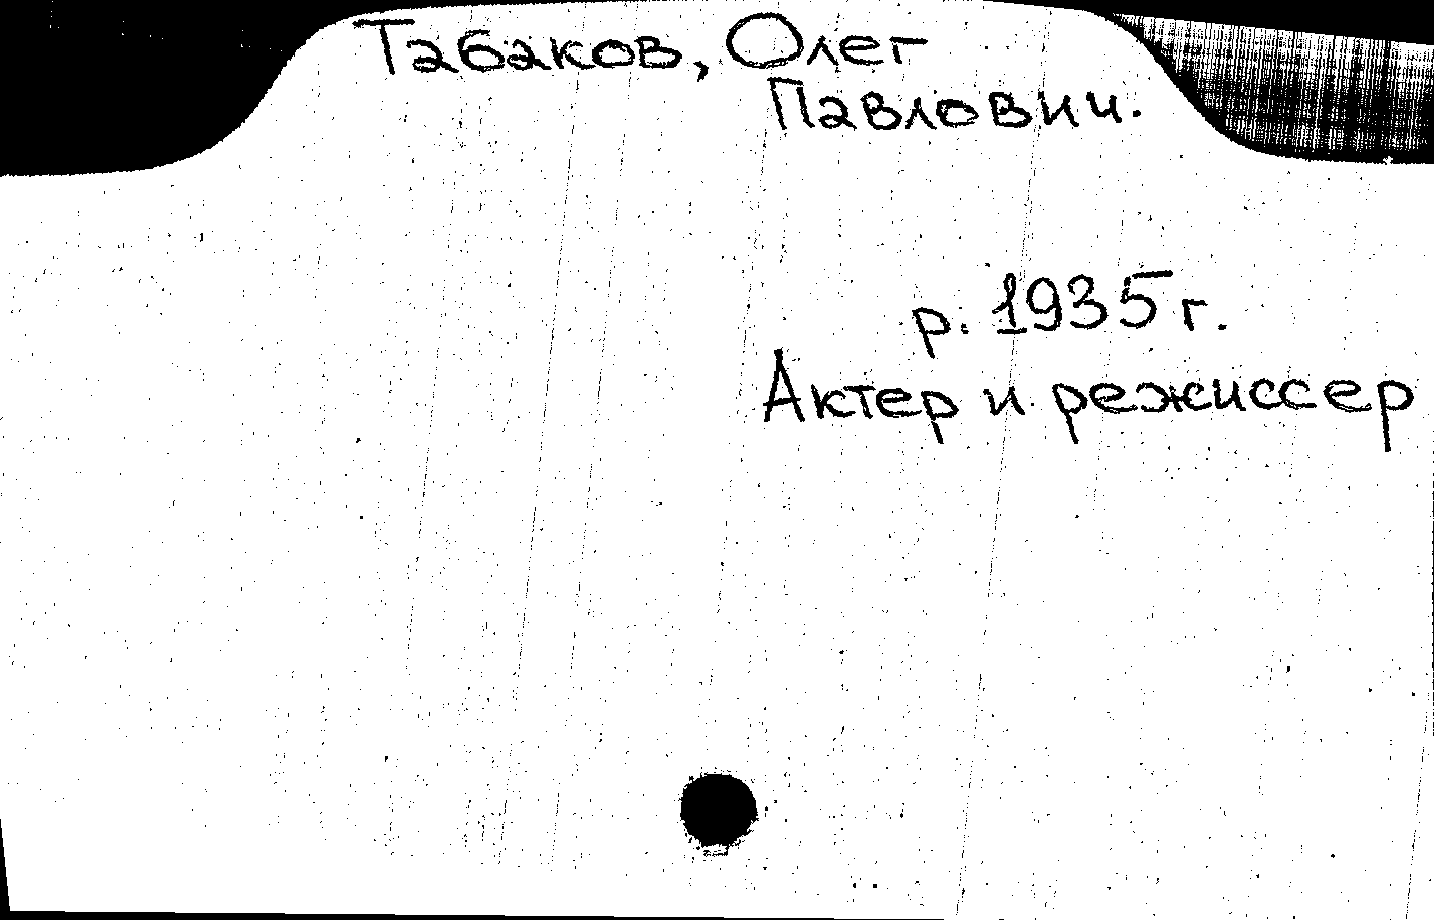 Табаков, Олег
Павлович.
р. 1935 г.
Актер и режиссер